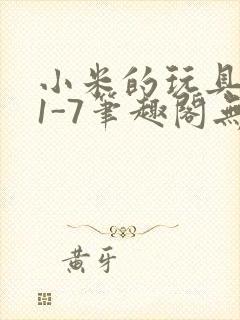 小米的玩具
1-7筆趣閣無
黄牙